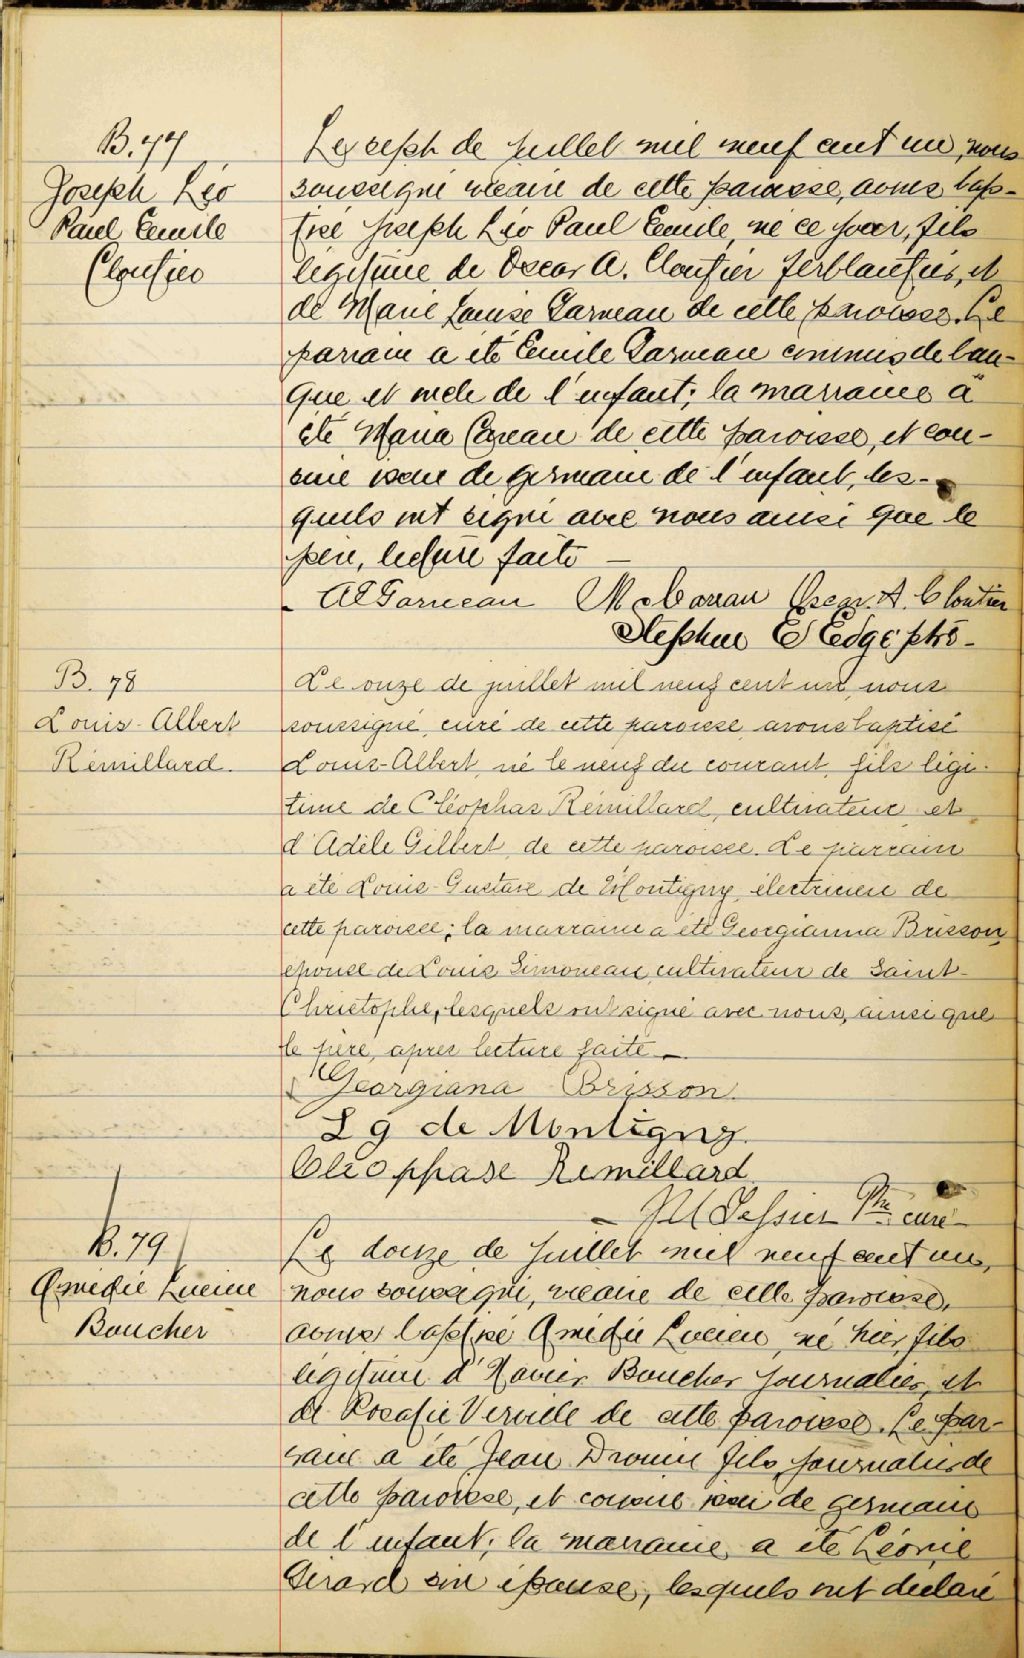 B. 77
Joseph Léo
Paul Emile
Cloutier
Le sept de juillet mil neuf cent un, nous
soussigné vicaire de cette paroisse, avons bap-
tisé Joseph Léo Paul Emile, né ce jour, fils
légitime de Oscar A. Cloutier ferblantier, et
de Marie Louise Garneau de cette paroisse. Le
parrain a été Emile Garneau commis de ban-
que et oncle de l'enfant; la marraine a
été Maria Careau de cette paroisse, et cou-
sine issue de germain de l'enfant, les-
quels ont signé avec nous ainsi que le
père, lecture faite —
AE Garneau Oscar. A. Cloutier
Stephen E Edge ptre -
B. 78
Louis-Albert
Rémillard.
Le onze de juillet mil neuf cent un, nous
soussigné, curé de cette paroisse, avons baptisé
Louis-Albert, né le neuf du courant, fils légi-
time de Cléophas Rémillard, cultivateur et
d'Adèle Gilbert, de cette paroisse. Le parrain
a été Louis-Gustave de Montigny, électricien de
cette paroisse; la marraine a été Georgianna Brisson,
épouse de Louis Simoneau, cultivateur de Saint-
Christophe, lesquels ont signé avec nous, ainsi que
le père, après lecture faite —
Georgiana Brisson.
L g de Montigny.
Cleophase Remillard
Tessier Ptre curé
B. 79
Amédée Lucien
Boucher
Le douze de juillet mil neuf cent un,
nous soussigné, vicaire de cette paroisse,
avons baptisé Amédée Lucien, né hier, fils
légitime d'Xavier Boucher journalier, et
de Rosalie Verville de cette paroisse. Le par-
rain a été Jean Drouin fils, journalier de
cette paroisse, et cousin issu de germain
de l'enfant; la marraine a été Léonie
Girard son épouse, lesquels ont déclaré